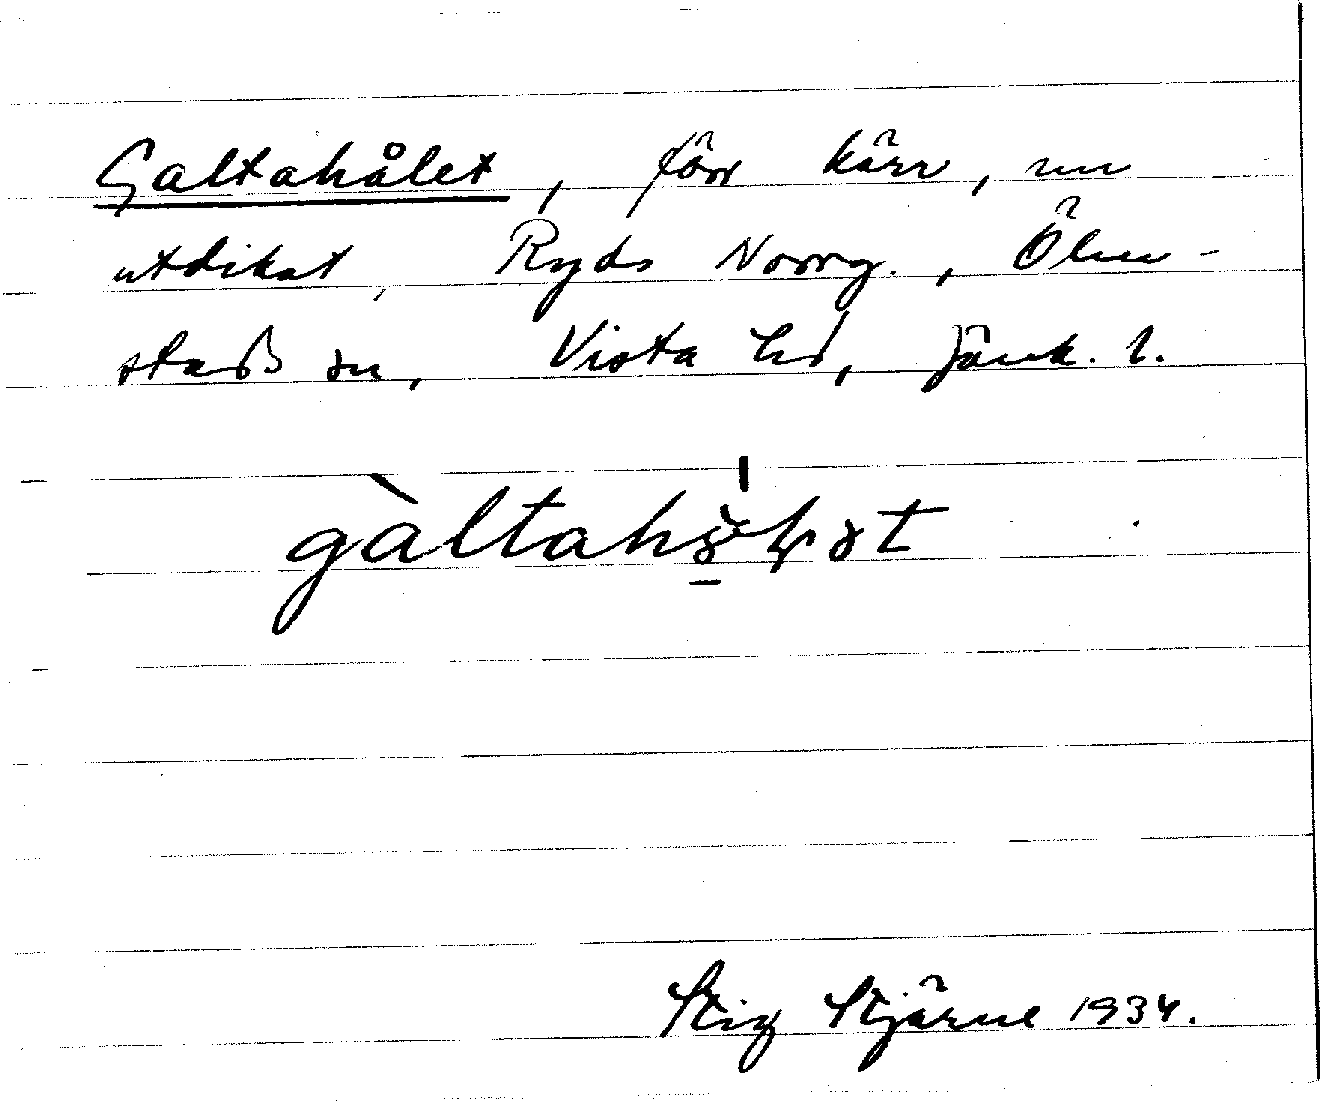 Galtahålet, förr kärr, nu
utdikat, Ryds Norrg., Ölm-
stads sn, Vista hd, Jönk. l.
Stig Stjärne 1934.